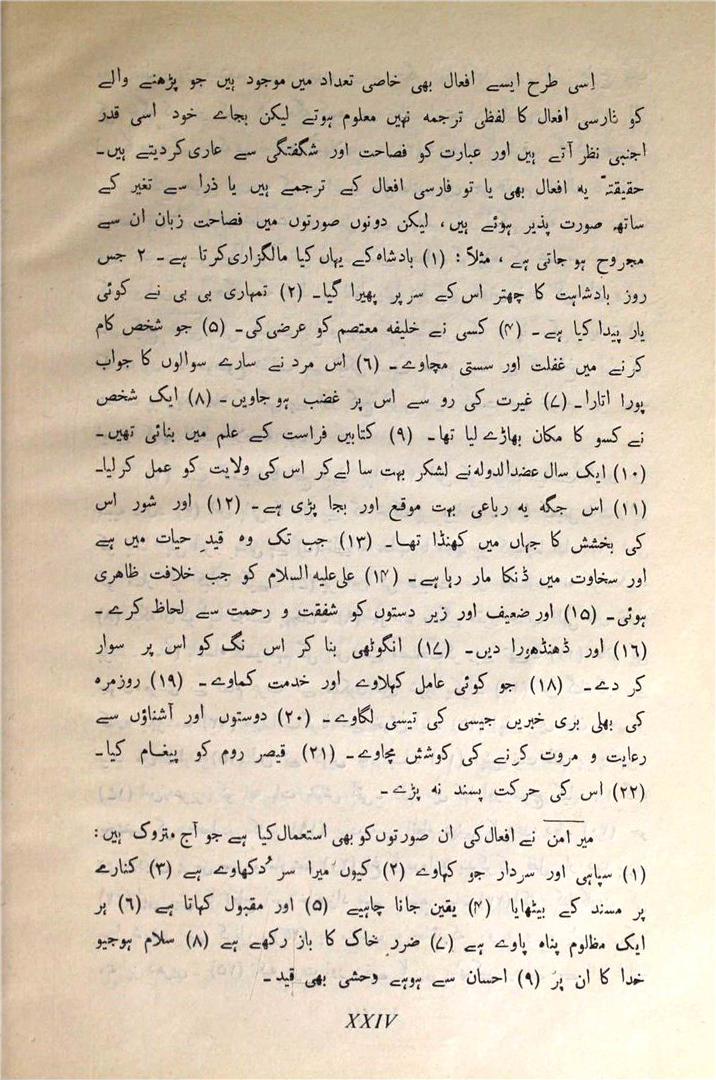 اِسی طرح ایسے افعال بھی خاصی تعداد میں موجود ہیں جو پڑھنے والے
کو فارسی افعال کا لفظی ترجمہ نہیں معلوم ہوتے لیکن بجاے خود اسی قدر
اجنبی نظر آتے ہیں اور عبارت کو فصاحت اور شگفتگی سے عاری کر دیتے ہیں۔
حقیقتہً یہ افعال بھی یا تو فارسی افعال کے ترجمے ہیں یا ذرا سے تغیر کے
ساتھ صورت پذیر ہوئے ہیں، لیکن دونوں صورتوں میں فصاحت زبان ان سے
مجروح ہو جاتی ہے، مثلاً: (۱) بادشاہ کے یہاں کیا مالگزاری کرتا ہے۔ ۲ جس
روز بادشاہت کا چھتر اس کے سر پر پھیرا گیا۔ (۲) تمہاری بی بی نے کوئی
یار پیدا کیا ہے۔ (۴) کسی نے خلیفہ معتصم کو عرضی کی۔ (۵) جو شخص کام
کرنے میں غفلت اور سستی مچاوے۔ (۶) اس مرد نے سارے سوالوں کا جواب
پورا اتارا۔ (۷) غیرت کی رو سے اس پر غضب ہو جاویں۔ (۸) ایک شخص
نے کسو کا مکان بھاڑے لیا تھا۔ (۹) کتابیں فراست کے علم میں بنائی تھیں۔
(۱۰) ایک سال عضدالدولہ نے لشکر بہت سا لے کر اس کی ولایت کو عمل کر لیا۔
(۱۱) اس جگہ یہ رباعی بہت موقع اور بجا پڑی ہے۔ (۱۲) اور شور اس
کی بخشش کا جہاں میں کھنڈا تھا۔ (۱۳) جب تک وہ قیدِ حیات میں ہے
اور سخاوت میں ڈنکا مار رہا ہے۔ (۱۴) علی علیہ السلام کو جب خلافت ظاہری
ہوئی۔ (۱۵) اور ضعیف اور زیر دستوں کو شفقت و رحمت سے لحاظ کرے۔
(۱۶) اور ڈھنڈھورا دیں۔ (۱۷) انگوٹھی بنا کر اس نگ کو اس پر سوار
کر دے۔ (۱۸) جو کوئی عامل کہلاوے اور خدمت کماوے۔ (۱۹) روزمرہ
کی بھلی بری خبریں جیسی کی تیسی لگاوے۔ (۲۰) دوستوں اور آشناؤں سے
رعایت و مروت کرنے کی کوشش مچاوے۔ (۲۱) قیصر روم کو پیغام کیا۔
(۲۲) اس کی حرکت پسند نہ پڑے۔
میر امن نے افعال کی ان صورتوں کو بھی استعمال کیا ہے جو آج متروک ہیں:
(۱) سپاہی اور سردار جو کہاوے (۲) کیوں میرا سر دُکھاوے ہے (۳) کنارے
پر مسند کے بیٹھایا (۴) یقین جانا چاہیے (۵) اور مقبول کہاتا ہے (۶) ہر
ایک مظلوم پناہ پاوے ہے (۷) ضرر خاک کا باز رکھے ہے (۸) سلام ہوجیو
خدا کا ان پر (۹) احسان سے ہوہے وحشی بھی قید۔
XXIV